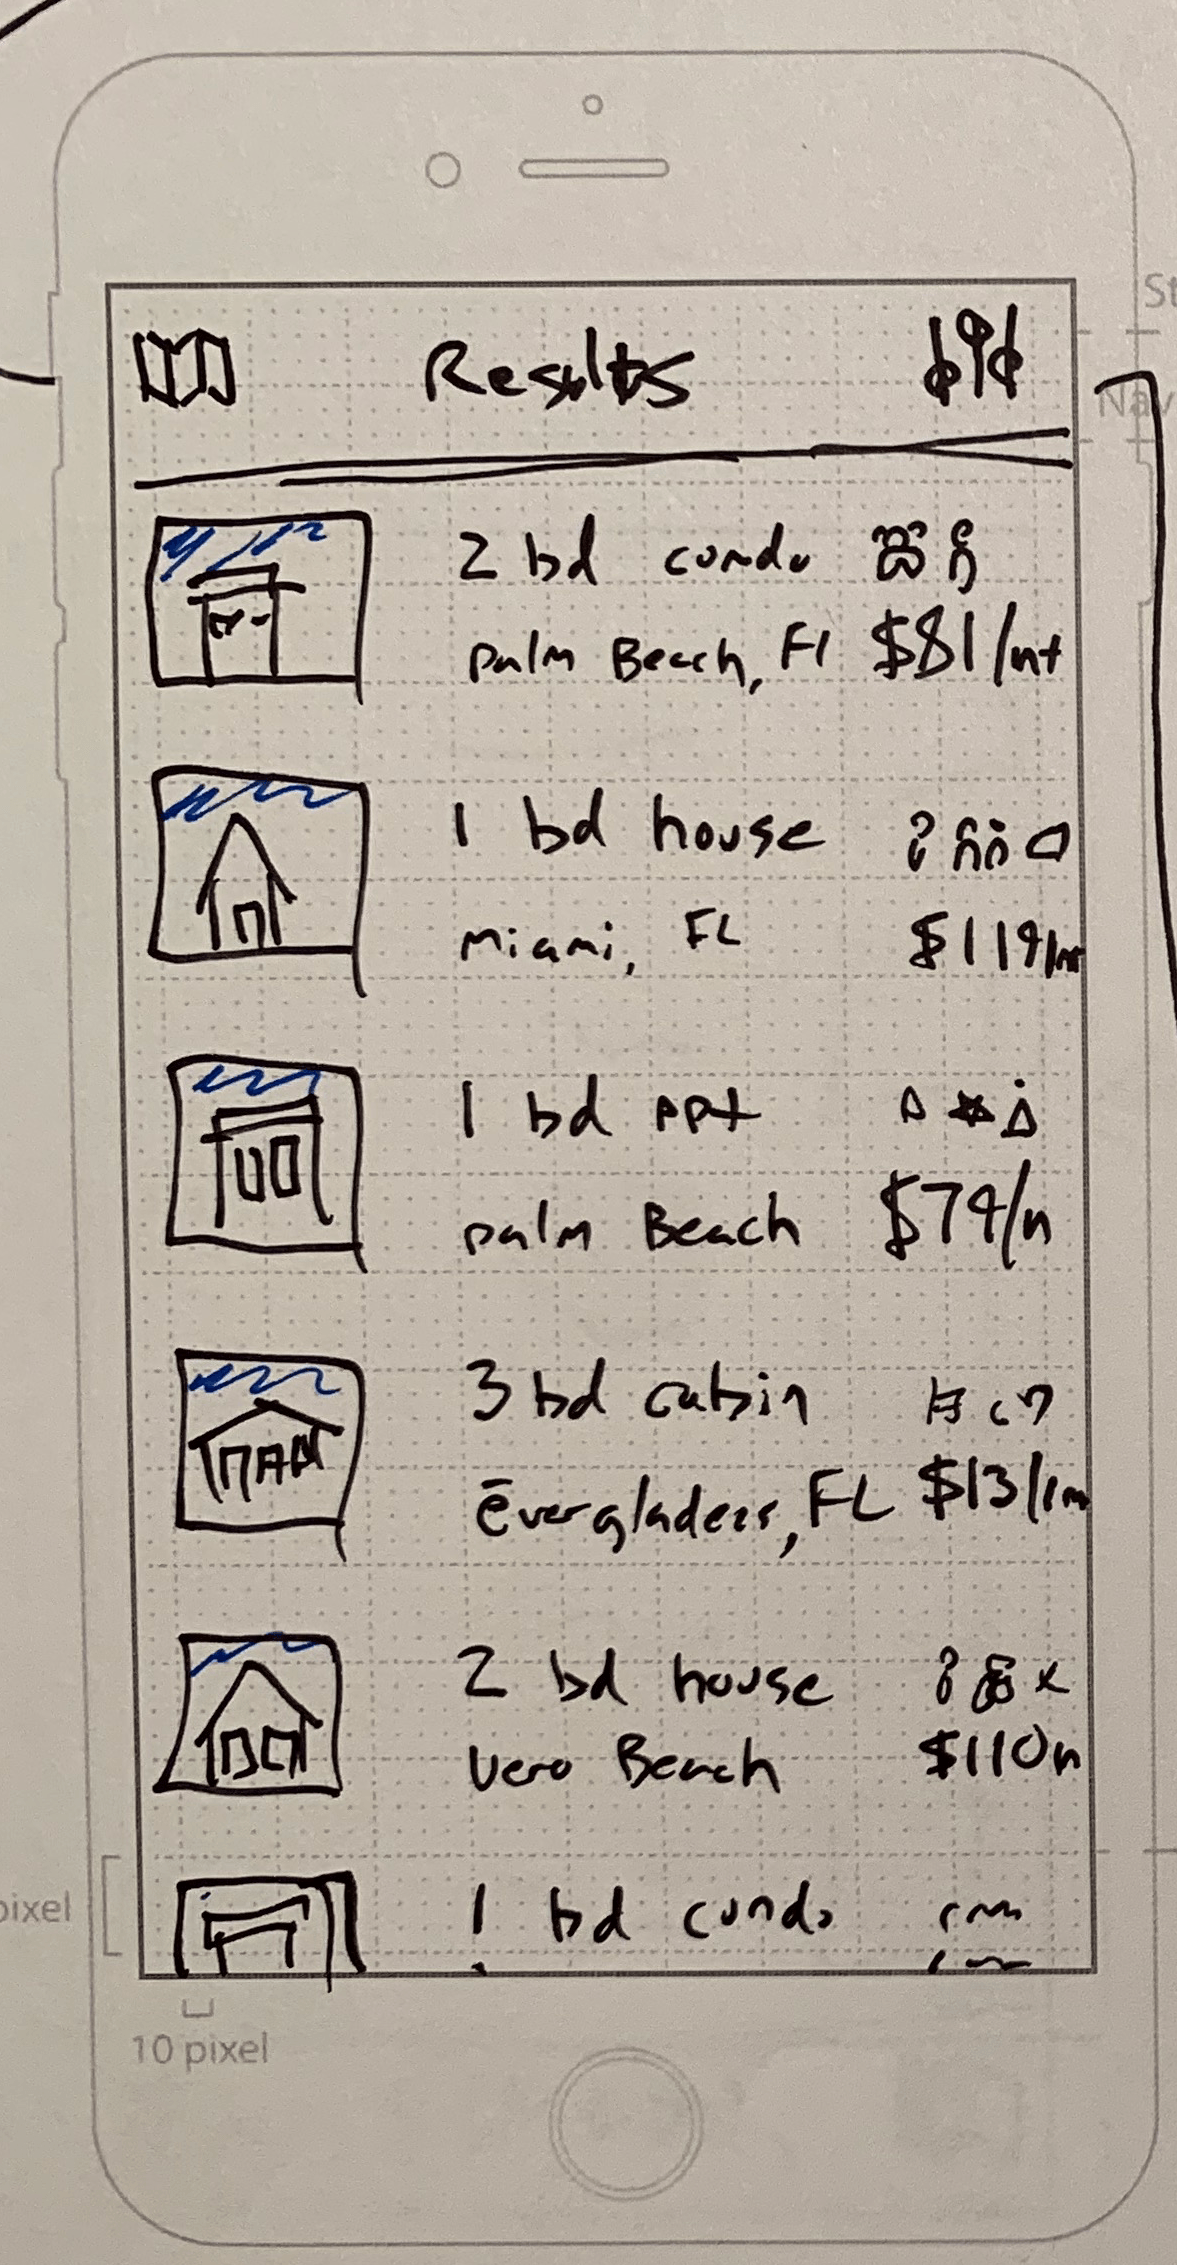 St
Results
Nav
2 bd condo
palm Beach, Fl $81/nt
1 bd house
Miami, FL $119/nt
1 bd apt
palm Beach $79/n
3 bd cabin
Everglades, FL
2 bd house
Vero Beach $110n
1 bd condo
pixel
10 pixel